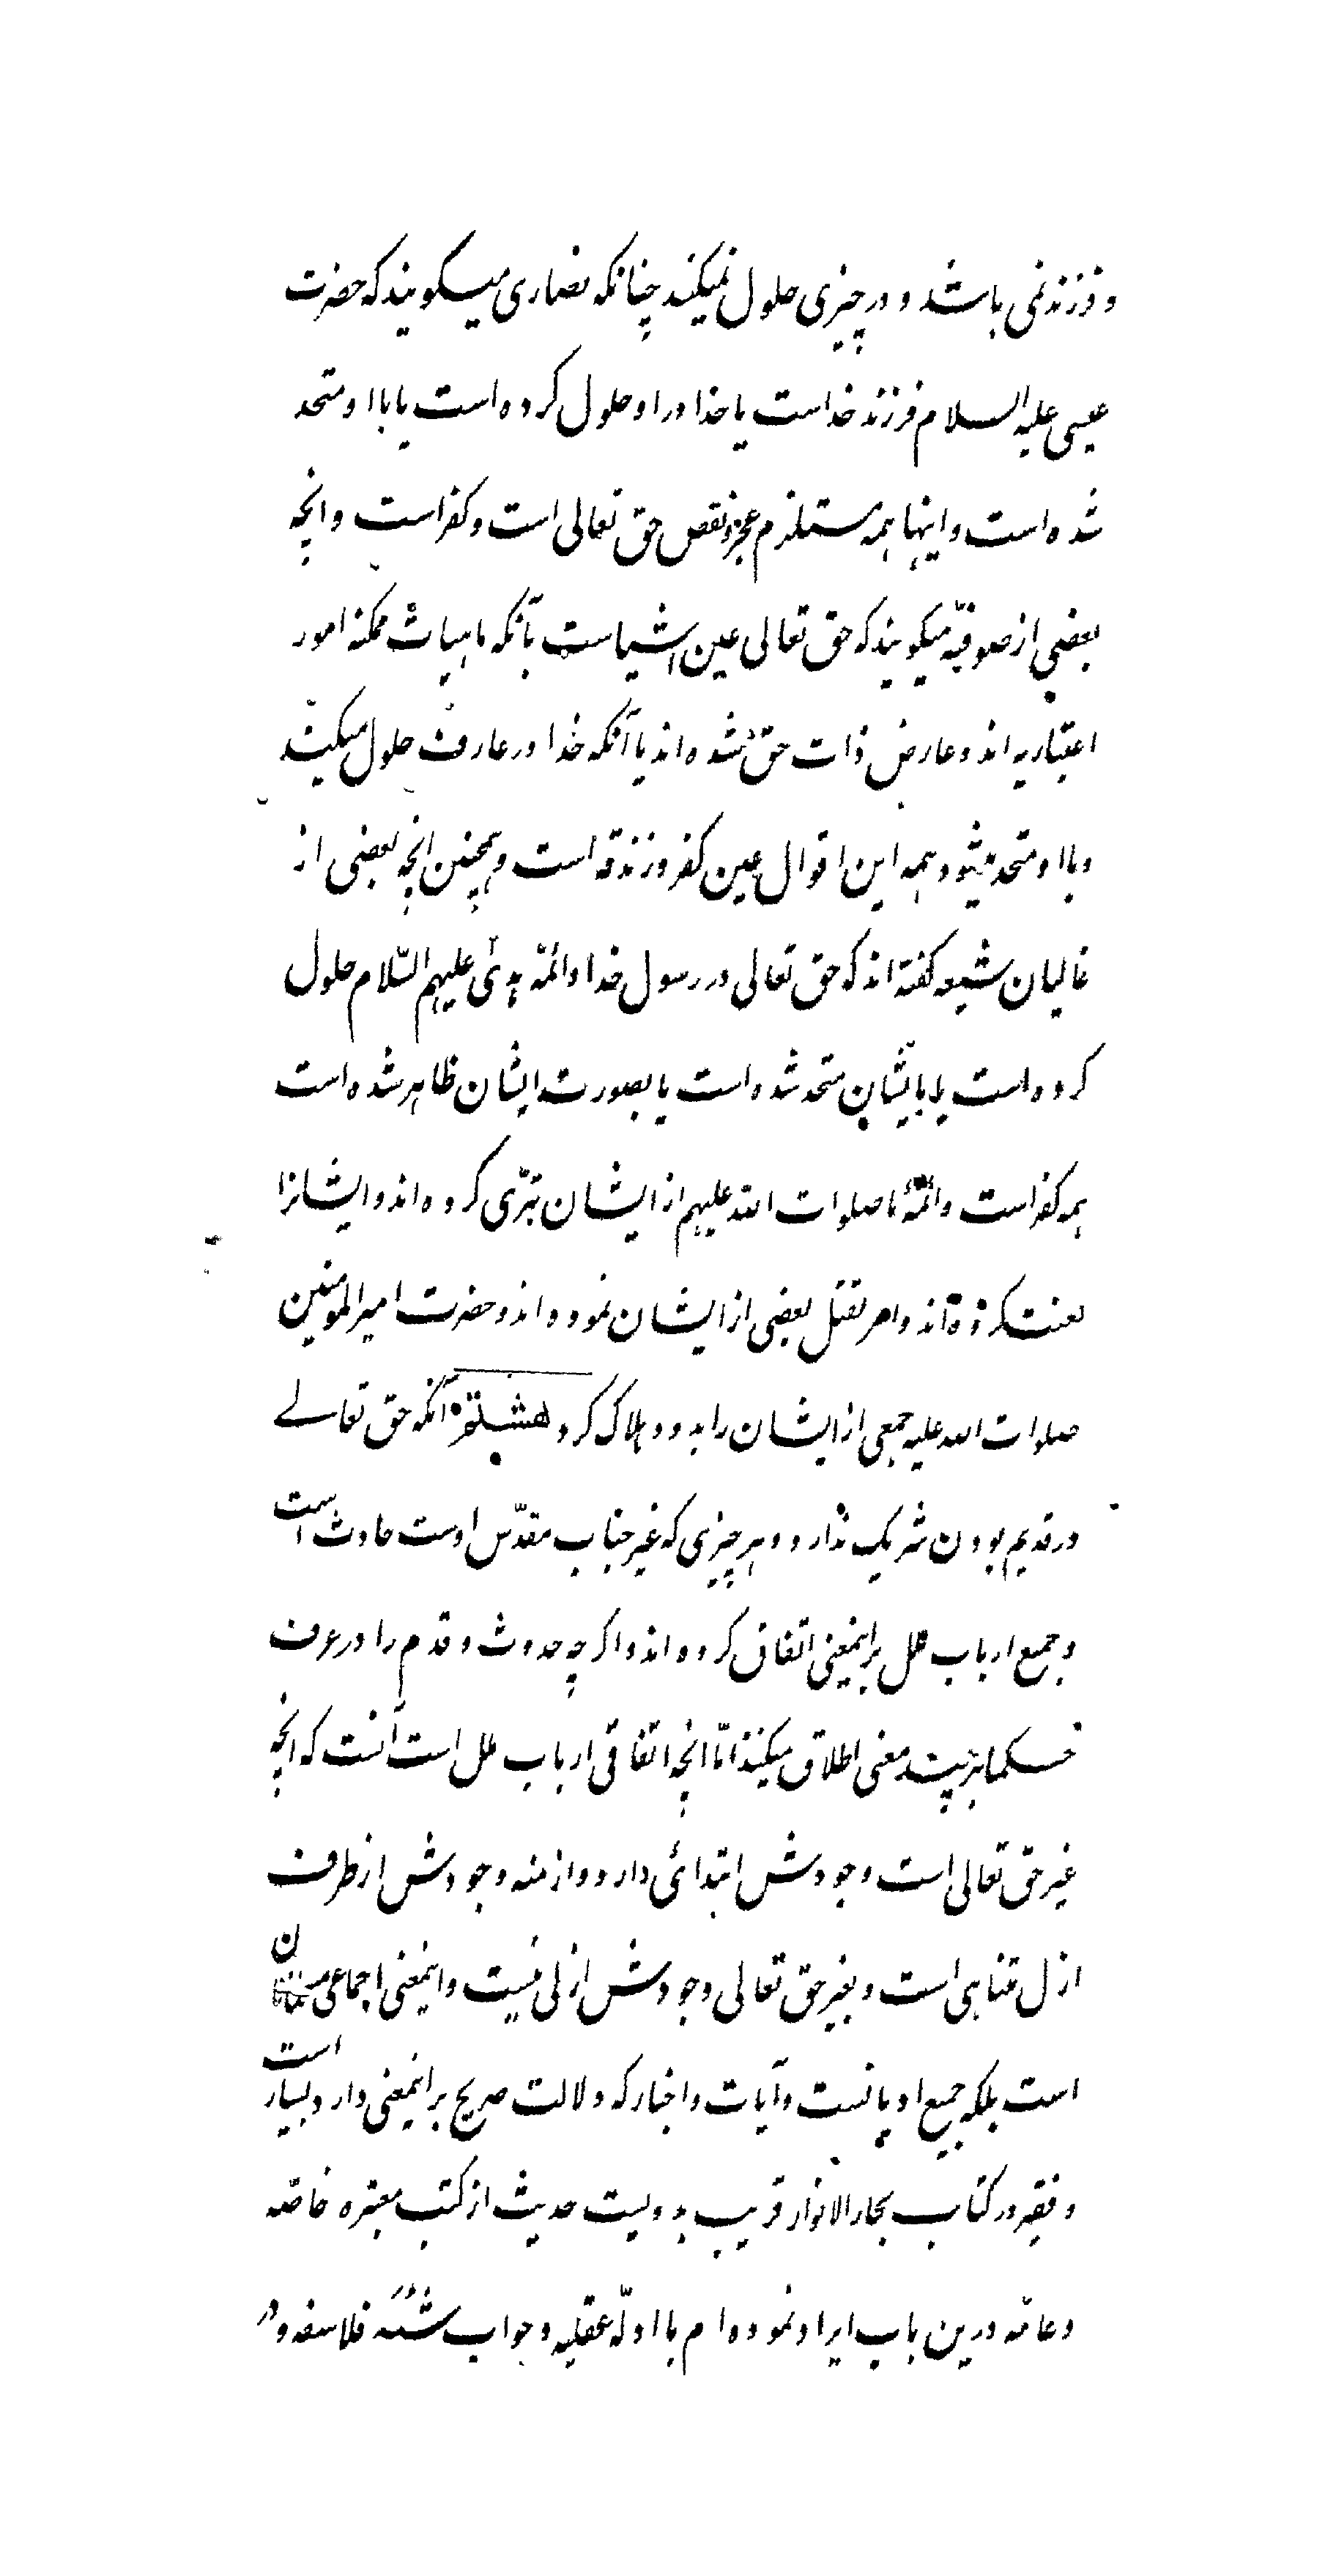 و فرزند نمی باشد و در چیزی حلول نمیکند چنانکه نصاری میگویند که حضرت
عیسی علیه السلام فرزند خداست یا خدا در او حلول کرده است یا با او متحد
شده است و اینها همه مستلزم عجز و نقص حق تعالی است و کفر است و انچه
بعضی از صوفیّه میگویند که حق تعالی عین اشیاست یا آنکه ماهیات ممکنه امور
اعتباریه اند و عارض ذات حق شده اند یا آنکه خدا در عارف حلول میکند
و با او متحد میشود همه این اقوال عین کفر و زندقه است و همچنین انچه بعضی از
غالیان شیعه گفته اند که حق تعالی در رسول خدا و ائمّه هدی علیهم السّلام حلول
کرده است یا با یشان متحد شده است یا بصورت ایشان ظاهر شده است
همه کفر است و ائمّهٔ ما صلوات الله علیهم از ایشان تبرّی کرده اند و ایشانرا
لعنت کرده اند و امر بقتل بعضی از ایشان نموده اند و حضرت امیر المومنین
صلوات الله علیه جمعی از ایشان را بدود هلاک کرد هشتم آنکه حق تعالے
در قدیم بودن شریک ندارد و هر چیزی که غیر جناب مقدّس اوست حادث است
و جمیع ارباب ملل بر اینمعنی اتفاق کرده اند و اگر چه حدوث و قدم را در عرف
حکما بر چند معنی اطلاق میکنند امّا انچه اتفاقی ارباب ملل است آنست که انچه
غیر حق تعالی است وجودش ابتدائی دارد و ازمنه وجودش از طرف
ازل متناهی است و بغیر حق تعالی وجودش ازلی نیست و اینمعنی اجماعی مسلمانان
است بلکه جمیع ادیانست و آیات و اخبار که دلالت صریح بر اینمعنی دارد بسیار است
و فقیر در کتاب بحار الانوار قریب بدویست حدیث از کتب معتبره خاصّه
و عامّه درین باب ایراد نموده ام با ادلّه عقلیه و جواب شبهه فلاسفه و در